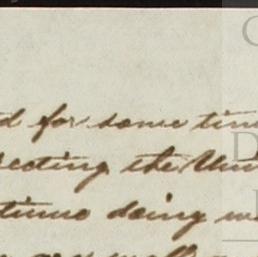 d for some tim
ecting the Uni
tinue doing w